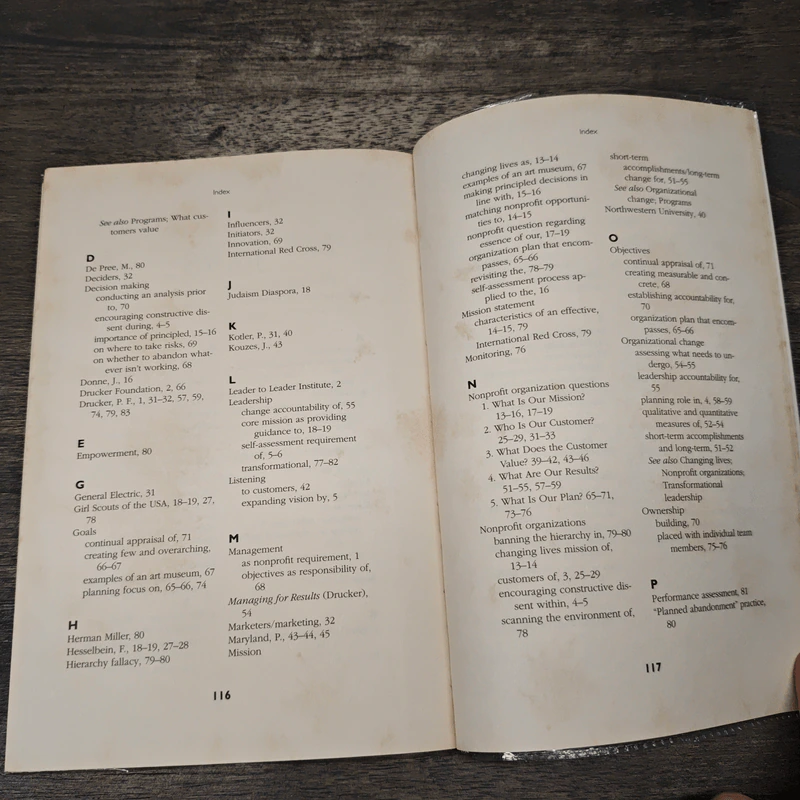 Index
See also Programs; What cus-
tomers value
D
De Pree, M., 80
Deciders, 32
Decision making
conducting an analysis prior
to, 70
encouraging constructive dis-
sent during, 4–5
importance of principled, 15–16
on where to take risks, 69
on whether to abandon what-
ever isn't working, 68
Donne, J., 16
Drucker Foundation, 2, 66
Drucker, P. F., 1, 31–32, 57, 59,
74, 79, 83
E
Empowerment, 80
G
General Electric, 31
Girl Scouts of the USA, 18–19, 27,
78
Goals
continual appraisal of, 71
creating few and overarching,
66–67
examples of an art museum, 67
planning focus on, 65–66, 74
H
Herman Miller, 80
Hesselbein, F., 18–19, 27–28
Hierarchy fallacy, 79–80
I
Influencers, 32
Initiators, 32
Innovation, 69
International Red Cross, 79
J
Judaism Diaspora, 18
K
Kotler, P., 31, 40
Kouzes, J., 43
L
Leader to Leader Institute, 2
Leadership
change accountability of, 55
core mission as providing
guidance to, 18–19
self-assessment requirement
of, 5–6
transformational, 77–82
Listening
to customers, 42
expanding vision by, 5
M
Management
as nonprofit requirement, 1
objectives as responsibility of,
68
Managing for Results (Drucker),
54
Marketers/marketing, 32
Maryland, P., 43–44, 45
Mission
116
Index
changing lives as, 13–14
examples of an art museum, 67
making principled decisions in
line with, 15–16
matching nonprofit opportuni-
ties to, 14–15
nonprofit question regarding
essence of our, 17–19
organization plan that encom-
passes, 65–66
revisiting the, 78–79
self-assessment process ap-
plied to the, 16
Mission statement
characteristics of an effective,
14–15, 79
International Red Cross, 79
Monitoring, 76
N
Nonprofit organization questions
1. What Is Our Mission?
13–16, 17–19
2. Who Is Our Customer?
25–29, 31–33
3. What Does the Customer
Value? 39–42, 43–46
4. What Are Our Results?
51–55, 57–59
5. What Is Our Plan? 65–71,
73–76
Nonprofit organizations
banning the hierarchy in, 79–80
changing lives mission of,
13–14
customers of, 3, 25–29
encouraging constructive dis-
sent within, 4–5
scanning the environment of,
78
short-term
accomplishments/long-term
change for, 51–55
See also Organizational
change; Programs
Northwestern University, 40
O
Objectives
continual appraisal of, 71
creating measurable and con-
crete, 68
establishing accountability for,
70
organization plan that encom-
passes, 65–66
Organizational change
assessing what needs to un-
dergo, 54–55
leadership accountability for,
55
planning role in, 4, 58–59
qualitative and quantitative
measures of, 52–54
short-term accomplishments
and long-term, 51–52
See also Changing lives;
Nonprofit organizations;
Transformational
leadership
Ownership
building, 70
placed with individual team
members, 75–76
P
Performance assessment, 81
"Planned abandonment" practice,
80
117